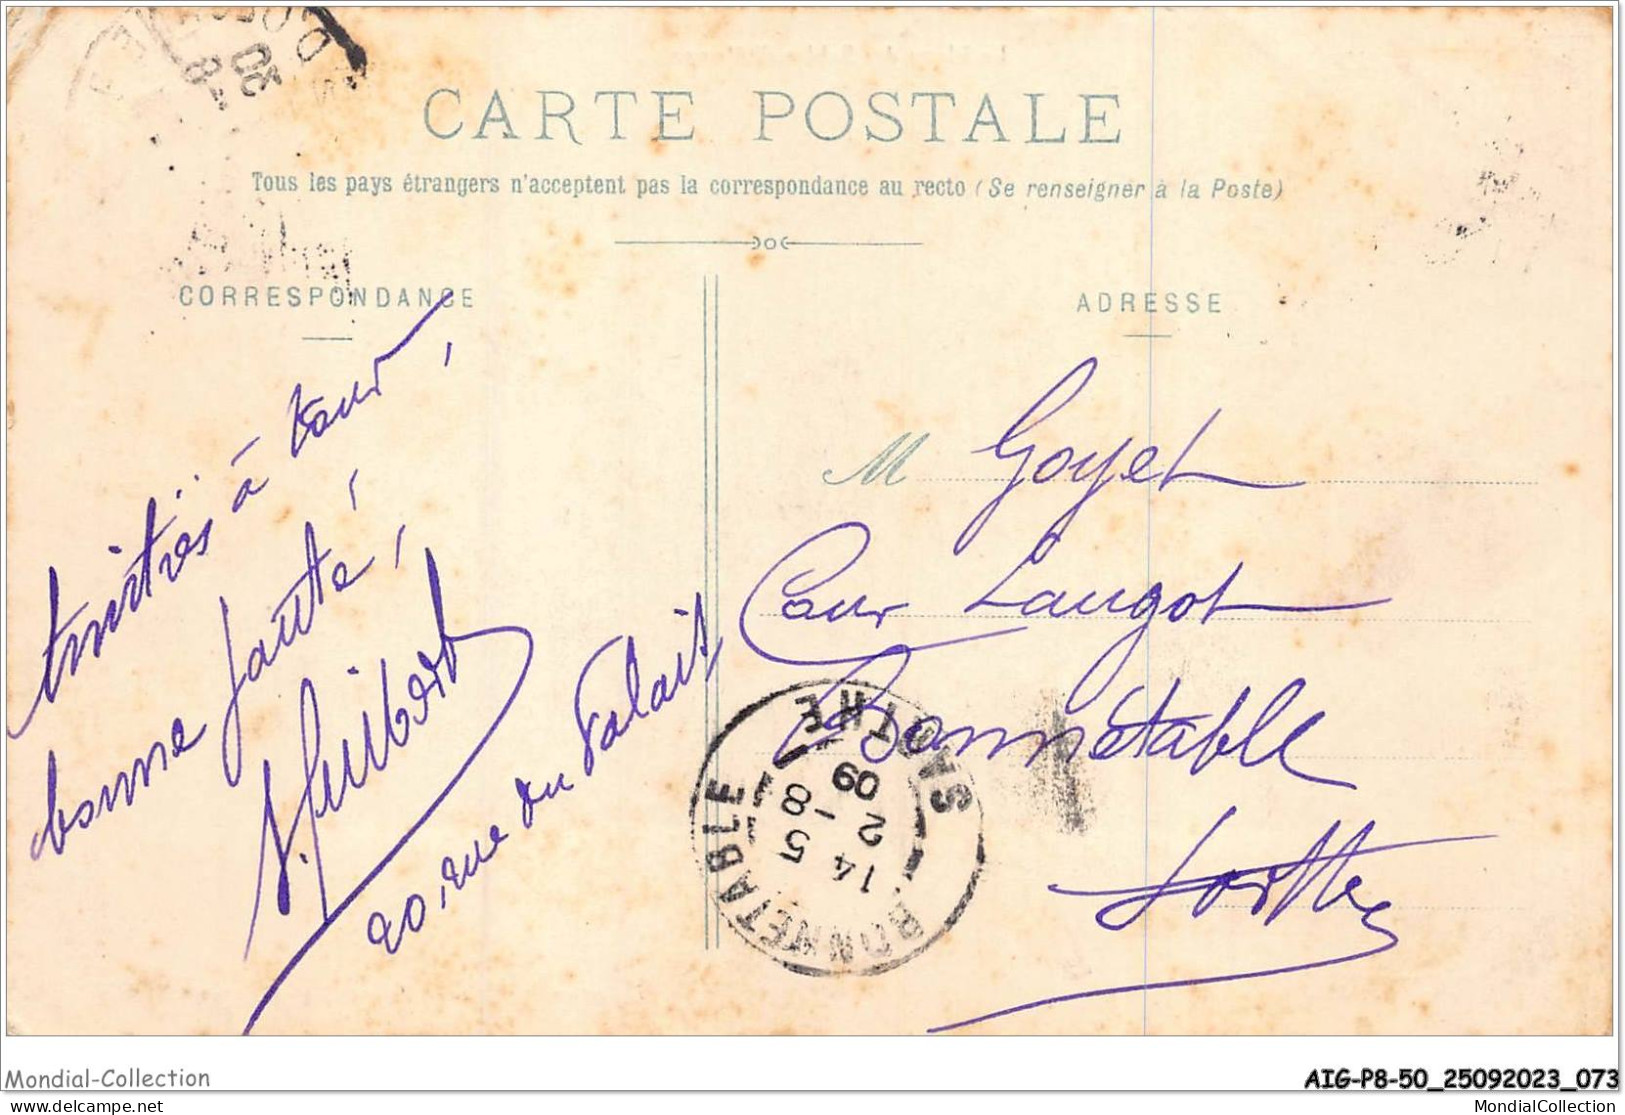 CARTE POSTALE
Tous les pays étrangers n'acceptent pas la correspondance au recto (Se renseigner à la Poste)
CORRESPONDANCE
ADRESSE
Amitiés à tour,
bonne santé!
Guibert
20, rue du Palais
M Goyet
Cour Laugot
Bonnétable
Sarthe
BONNETABLE
SARTHE
14 5
2 -8
09
Mondial-Collection
AIG-P8-50_25092023_073
delcampe.net
MondialCollection